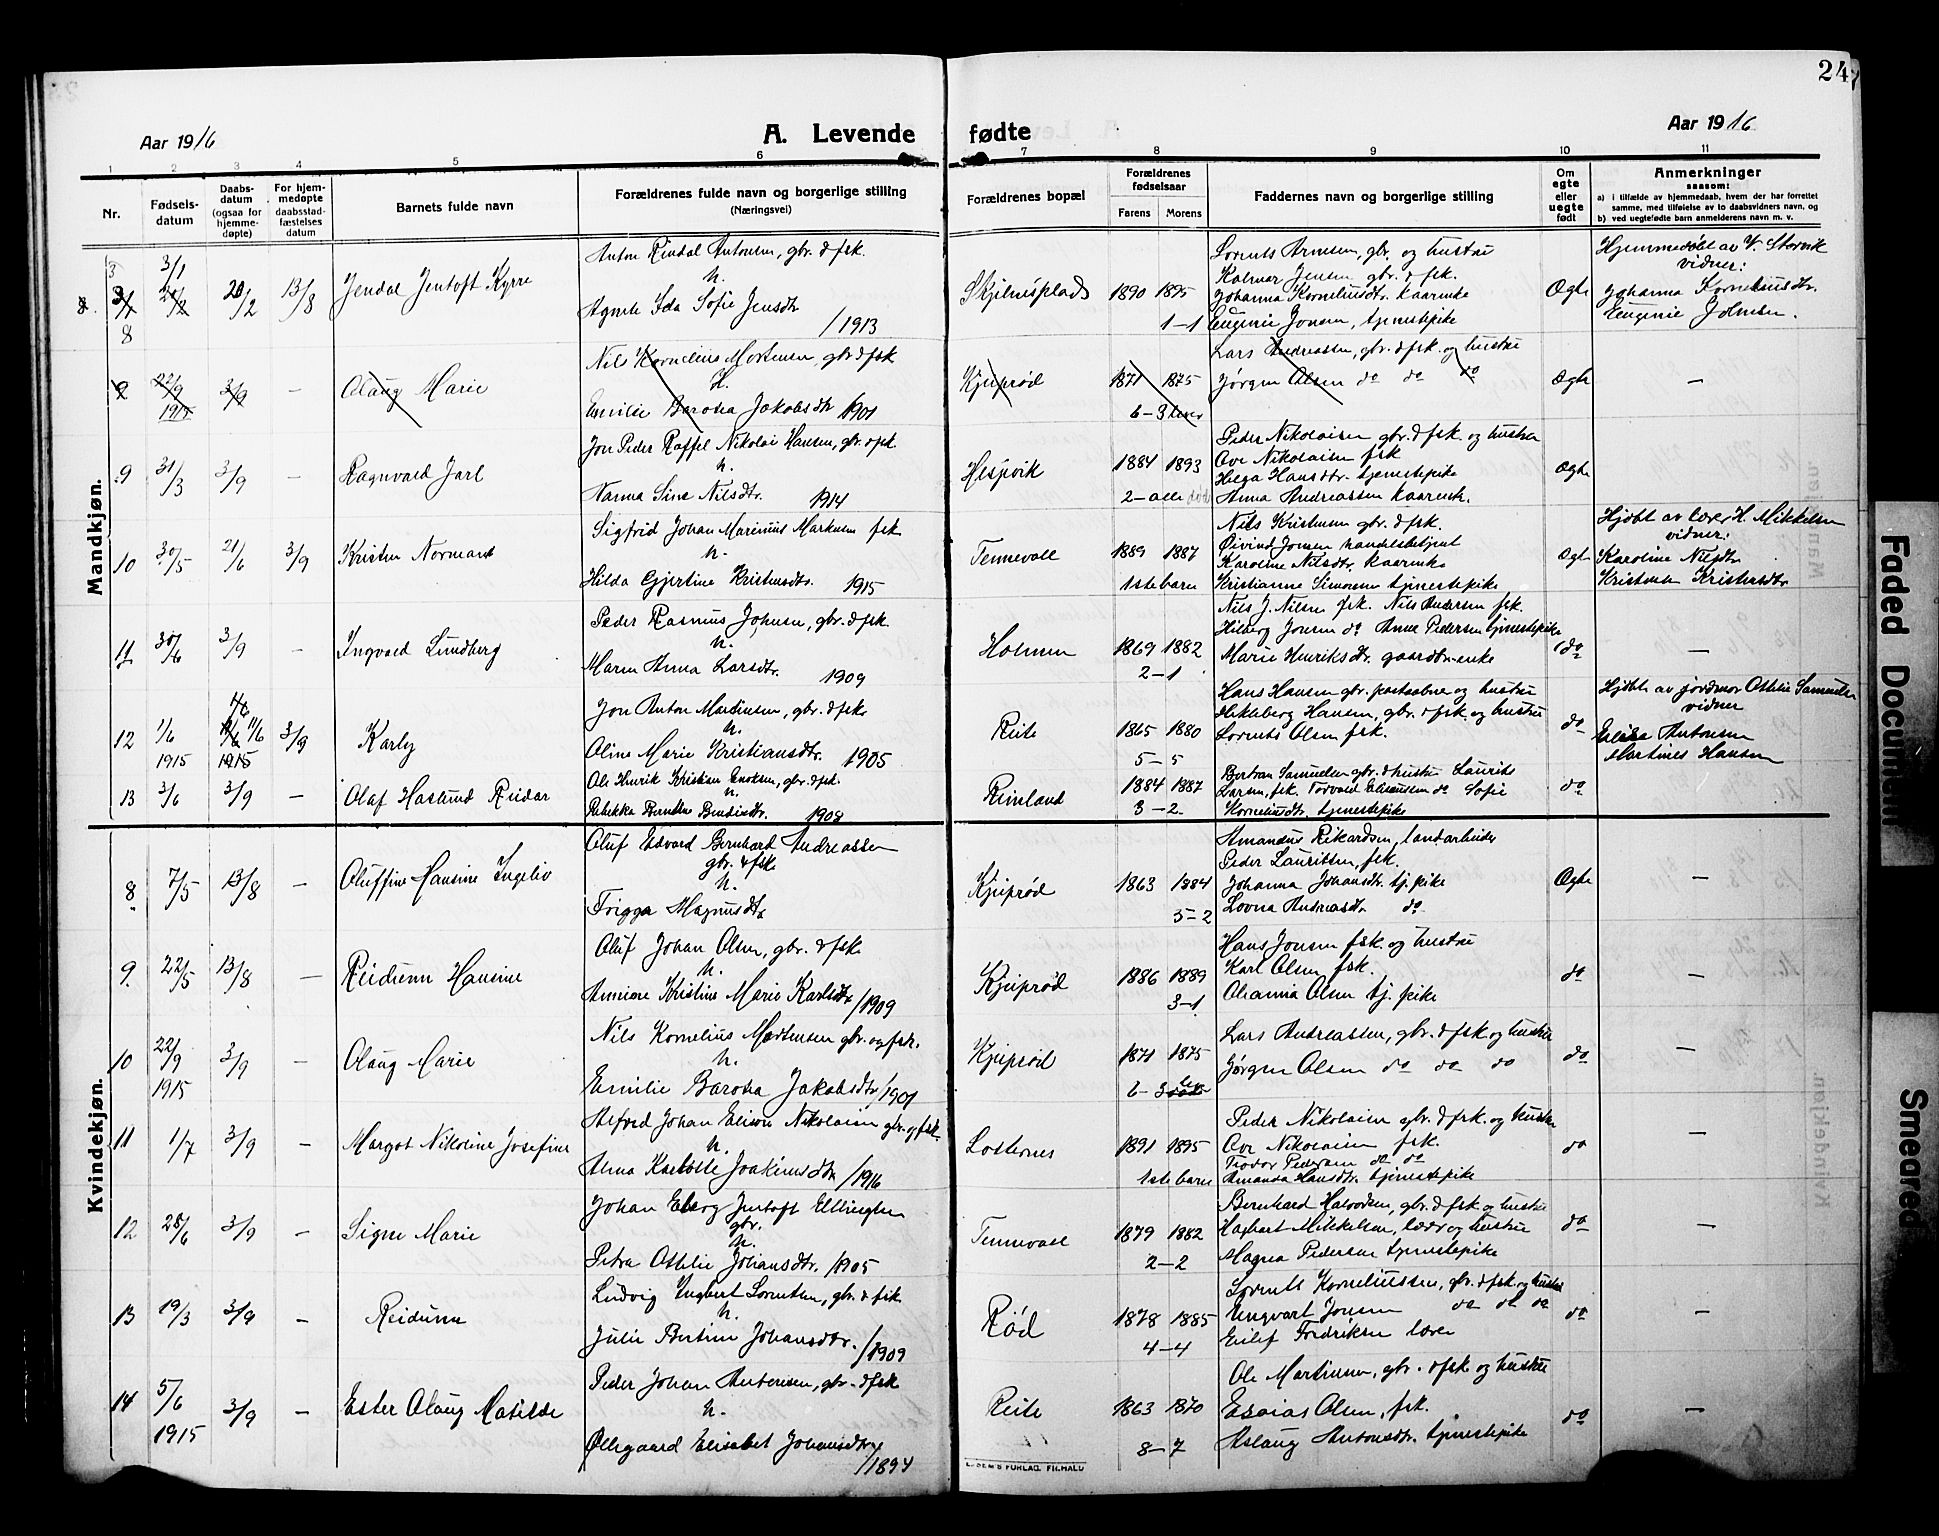 24
Aar 1916
A. Levende fødte
Aar 1916
1 2 3 4 5 6 7 8 9 10 11
Nr.
Fødsels-
datum
Daabs-
datum
(ogsaa for
hjemme-
døpte)
For hjem-
medøpte
daabsstad-
fæstelses
datum
Barnets fulde navn
Forældrenes fulde navn og borgerlige stilling
(Næringsvei)
Forældrenes bopæl
Forældrenes
fødselsaar
Farens Morens
Faddernes navn og borgerlige stilling
Om
egte
eller
uegte
født
Anmerkninger
saasom:
a) i tilfælde av hjemmedaab, hvem der har forrettet
samme, med tilføielse av to daabsvidners navn, og
b) ved uegtefødte barn anmelderens navn m. v.
Mandkjøn.
8 3/1 20/2 13/8 Jendal Jentoft Kyrre
Anton Rindal Antonsen, gbr. & fsk.
h.
Agnete Ida Sofie Jensdtr
/1913
Skjelnesplads 1890 1895
1-1
Lorents Arnesen, gbr. og hustru
Kolmar Jensen gbr. & fsk.
Johanna Korneliusdtr. kaarenke
Eugenie Jonsen, tjenestepike
Ægte
Hjemmedøbt av V. Storvik
vidner:
Johanna Korneliusdtr.
Eugenie Johnsen.
9 22/9 1915 3/9 – Olaug Marie
Nils Kornelius Mortensen, gbr & fsk
h.
Emilie Barona Jakobsdtr 1901
Kjeprød 1871 1875
6-3 lever
Lars Andreassen, gbr. & fsk. og hustru
Jørgen Olsen do do do
Ægte –
9 31/3 3/9 – Ragnvald Jarl
Jon Peder Raffel Nikolai Hansen, gbr. & fsk.
h.
Nanna Sine Nilsdtr. 1914
Hespvik 1884 1893
2-alle død
Peder Nikolaisen gbr. & fsk. og hustru
Ove Nikolaisen fsk
Helga Hansdtr. tjenestepike
Anna Andreassen kaarenk.
Ægte
10 30/5 21/6 3/9 Kristen Normant
Sigfrid Johan Marinius Markusen fsk
h.
Hilda Gjertine Kristensdtr. 1915
Tennevoll 1889 1887
1ste barn
Nils Kristensen gbr. & fsk.
Øivind Jonsen handelsbetjent
Karoline Nilsdtr. kaarenke
Kristianne Simonsen tjenestepike
Ægte
Hjdøbt av lærer H. Mikkelsen
vidner:
Karoline Nilsdtr
Kristensdtr
11 30/6 3/9 – Ingvald Lundberg
Peder Rasmus Johnsen, gbr. & fsk.
h.
Maren Anna Larsdtr. 1909
Holmen 1869 1882
2-1
Nils J. Nilsen fsk. Nils Andersen fsk.
Hilberg Jonsen do Anne Pedersen tjenestepike
Marie Henriksdtr. gaardbr.enke
do –
12 1/6 1915 11/6 1915 3/9 Karly
Jon Anton Martinsen, gbr. & fsk.
h.
Oline Marie Kristiansdtr. 1905
Reite 1865 1880
5-5
Hans Hansen gbr. postaabner og hustru
Hekleberg Hansen, gbr. & fsk. og hustru
Lorents Olsen fsk.
do
Hjdøbt av jordmor Ottelie Samuelsen
vidner
Elise Antonsen
Martines Hansen
13 3/6 3/9 – Olaf Haslund Reidar
Ole Henrik Kristian Enoksen, gbr. & fsk.
h.
Rebekka Berntine Bendiksdtr. 1908
Reinland 1884 1887
3-2
Bertran Samuelsen gbr. & hustru Laurits
Larsen, fsk. Torvald Eliseussen do Sofie
Korneliusdtr. tjenestepike
do
Kvindekjøn.
8 7/5 13/8 – Oluffine Hansine Ingeliv
Oluf Edvard Bernhart Andreassen
gbr. & fsk
h.
Frigga Magnusdtr
Kjeprød 1863 1884
3-2
Amandus Rikardsen, landarbeider
Peder Lauritsen, fsk.
Johanna Johansdtr. tj. pike
Lovna Andreasdtr do
Ægte –
9. 22/5 13/8 – Reidunn Hansine
Oluf Johan Olsen, gbr. & fsk
h.
Anniane Kristine Marie Karlsdtr /1909
Kjeprød 1886 1889
3-1
Hans Jonsen fsk. og hustru
Karl Olsen fsk.
Oleanna Olsen tj. pike
do –
10 22/9 1915 3/9 – Olaug Marie
Nils Kornelius Mortensen gbr. og fsk.
h.
Emilie Barona Jakobsdtr /1901
Kjeprød 1871 1875
6-3 lev
Lars Andreassen, gbr. & fsk og hustru
Jørgen Olsen do do do
do –
11 1/7 3/9 – Margot Nikoline Josefine
Alfred Johan Elisen Nikolaisen gbr. og fsk.
h.
Anna Karlotte Joakimsdtr /1916
Losternes 1891 1895
1ste barn
Peder Nikolaisen gbr. & fsk og hustru
Ove Nikolaisen fsk.
Teodor Pedersen do do
Amanda Hansdtr. tjenestepike
do –
12 28/6 3/9 – Signe Marie
Johan Elberg Jentoft Ellingsen
gbr.
h.
Petra Ottelie Johansdtr. /1905
Tennevoll 1879 1882
2-2
Bernhard Halvorsen, gbr. & fsk og hustru
Hagbart Mikkelsen, lærer og hustru
Magna Pedersen tjenestepike
do –
13 19/3 3/9 – Reidunn
Ludvig Ingbert Lorentsen, gbr. & fsk.
h.
Julie Bertine Johansdtr. /1909
Rød 1878 1885
4-4
Lorents Korneliussen, gbr. & fsk. og hustru
Ingvart Jonsen do do do
Eilef Fredriksen lærer
do –
14 5/6 1915 3/9 – Ester Olaug Matilde
Peder Johan Antonisen, gbr. & fsk
h.
Ollegaard Elisabet Johansdtr /1894
Reite 1863 1870
8-7
Ole Martinsen, gbr. & fsk og hustru
Esaias Olsen, fsk.
Aslaug Antonsdtr. tjenestepike
do –
FORLAG. FR.HALD
Faded Document
Smeared